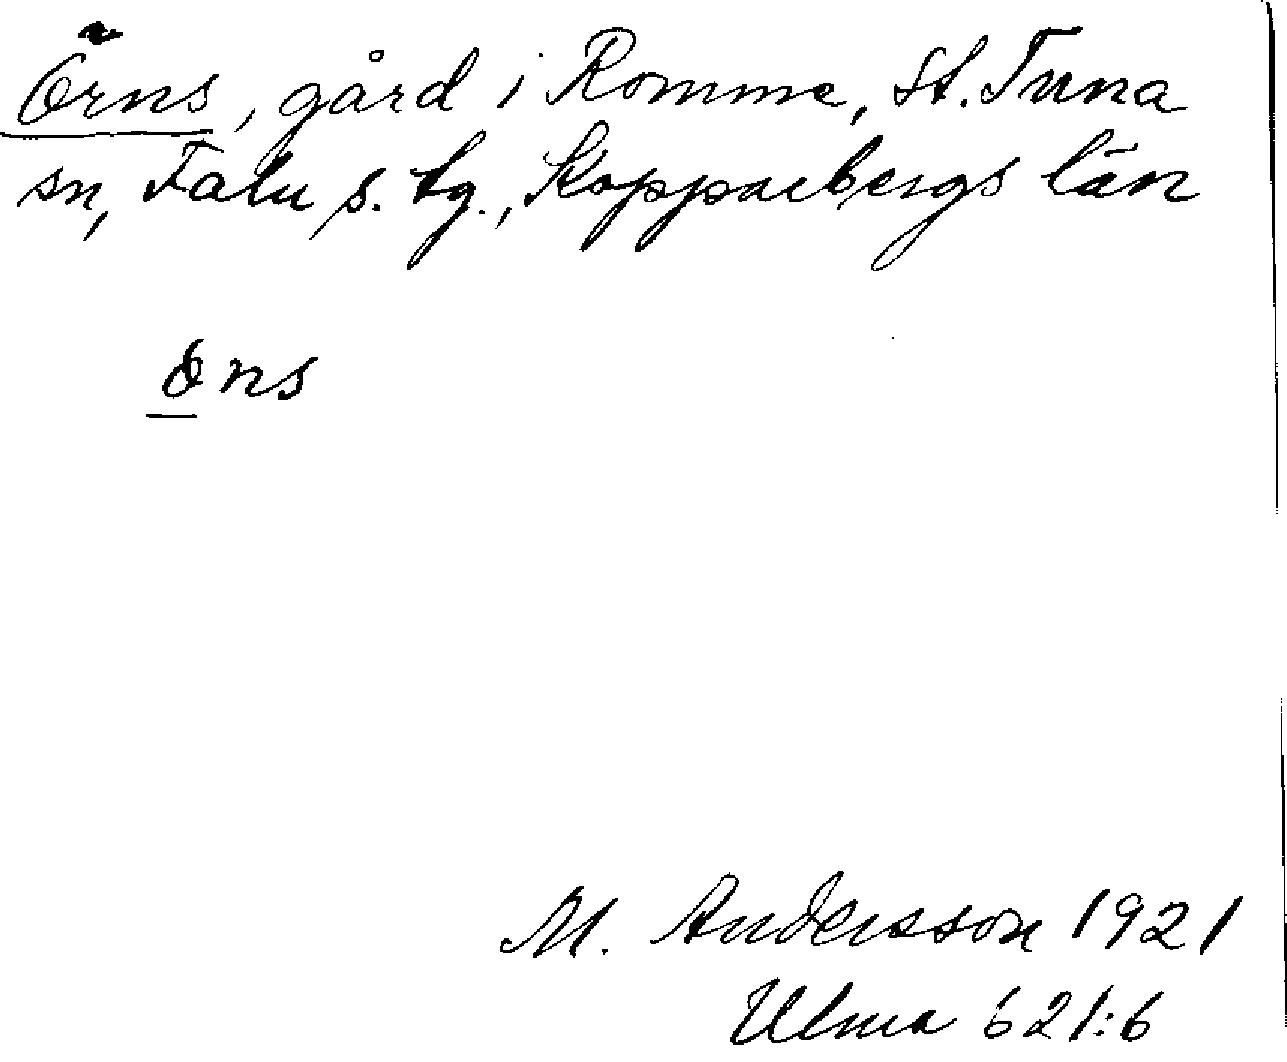 Örns, gård i Romme, St. Tuna
sn, Falu s. tg., Kopparbergs län
ns
M. Andersson 1921
Ulma 621:6